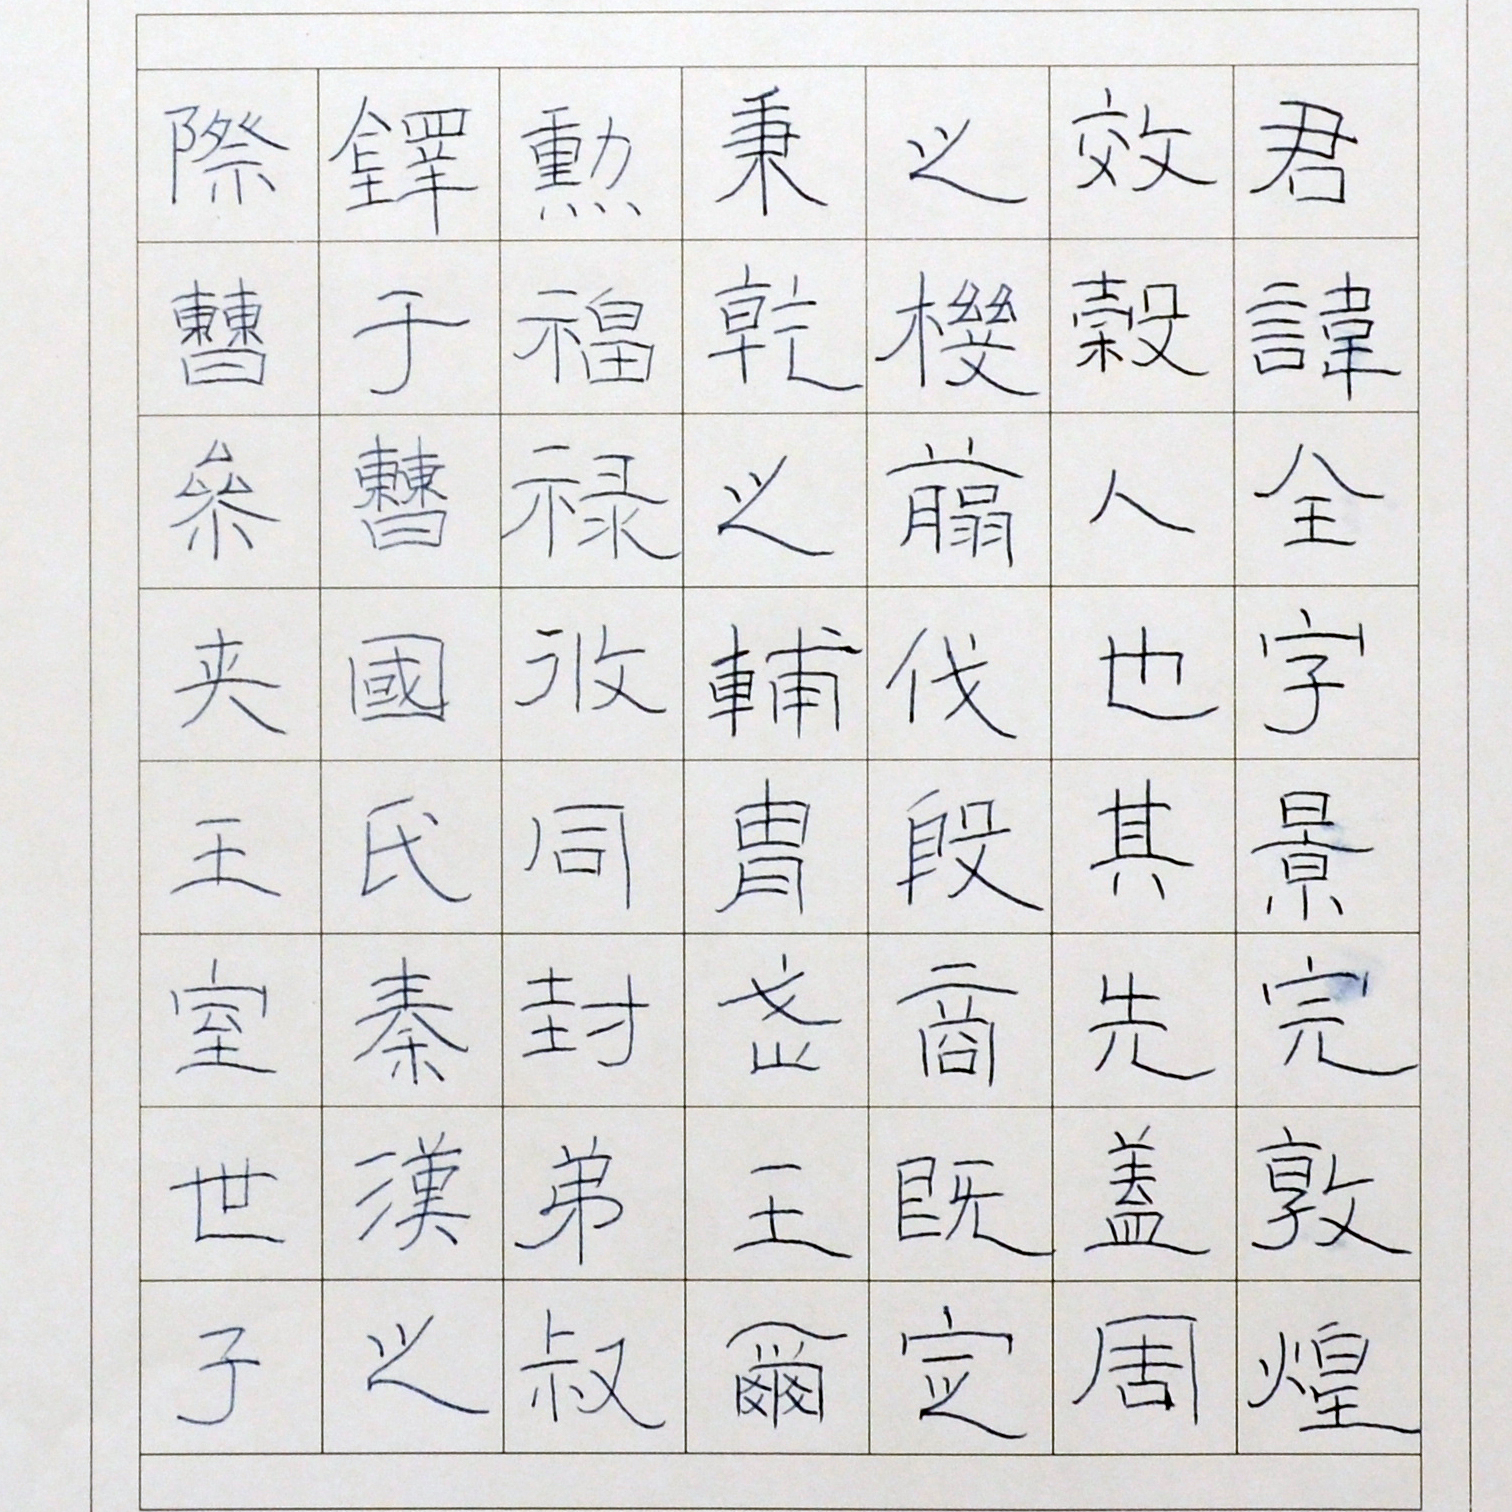 君諱全字景完敦煌
效穀人也其先蓋周
之機翦伐殷商既定
秉乾之輔胄武王爾
勳福禄攸同封弟叔
鐸于曹國氏秦漢之
際曹參夾王室世子